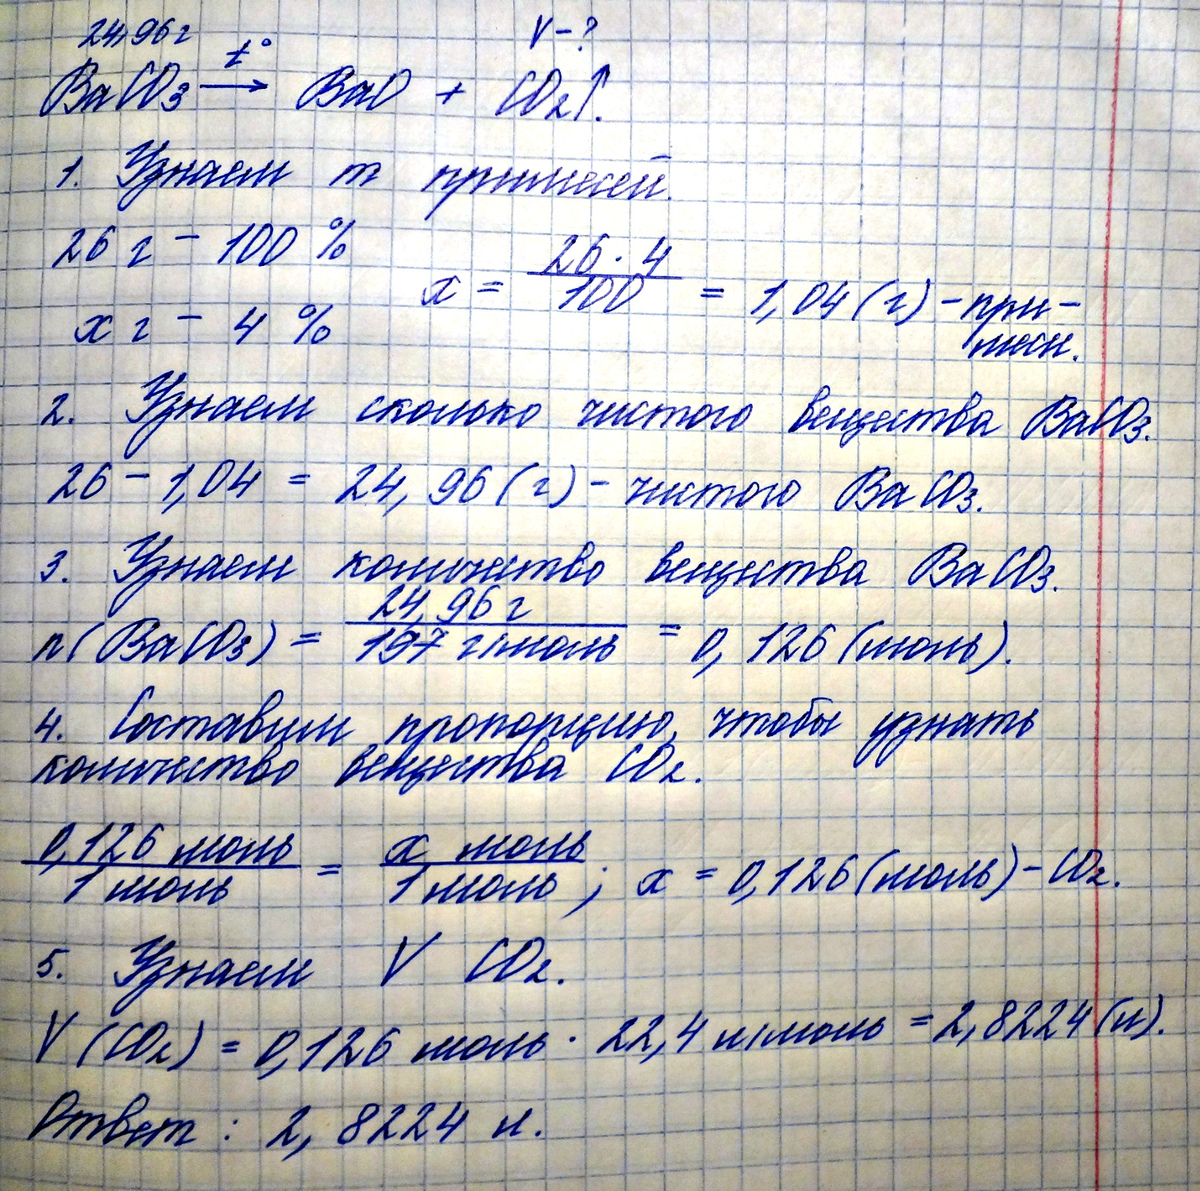 24,96 г V - ?
BaCO3 t° → BaO + CO2↑.
1. Узнаем m примесей.
26 г - 100 %
x г - 4 %
x = 26 · 4 / 100 = 1,04 (г) - при-
меси.
2. Узнаем сколько чистого вещества BaCO3.
26 - 1,04 = 24,96 (г) - чистого BaCO3.
3. Узнаем количество вещества BaCO3.
n(BaCO3) = 24,96 г / 197 г/моль = 0,126 (моль).
4. Составим пропорцию, чтобы узнать
количество вещества CO2.
0,126 моль / 1 моль = x моль / 1 моль ; x = 0,126 (моль) - CO2.
5. Узнаем V CO2.
V (CO2) = 0,126 моль · 22,4 л/моль = 2,8224 (л).
Ответ : 2,8224 л.